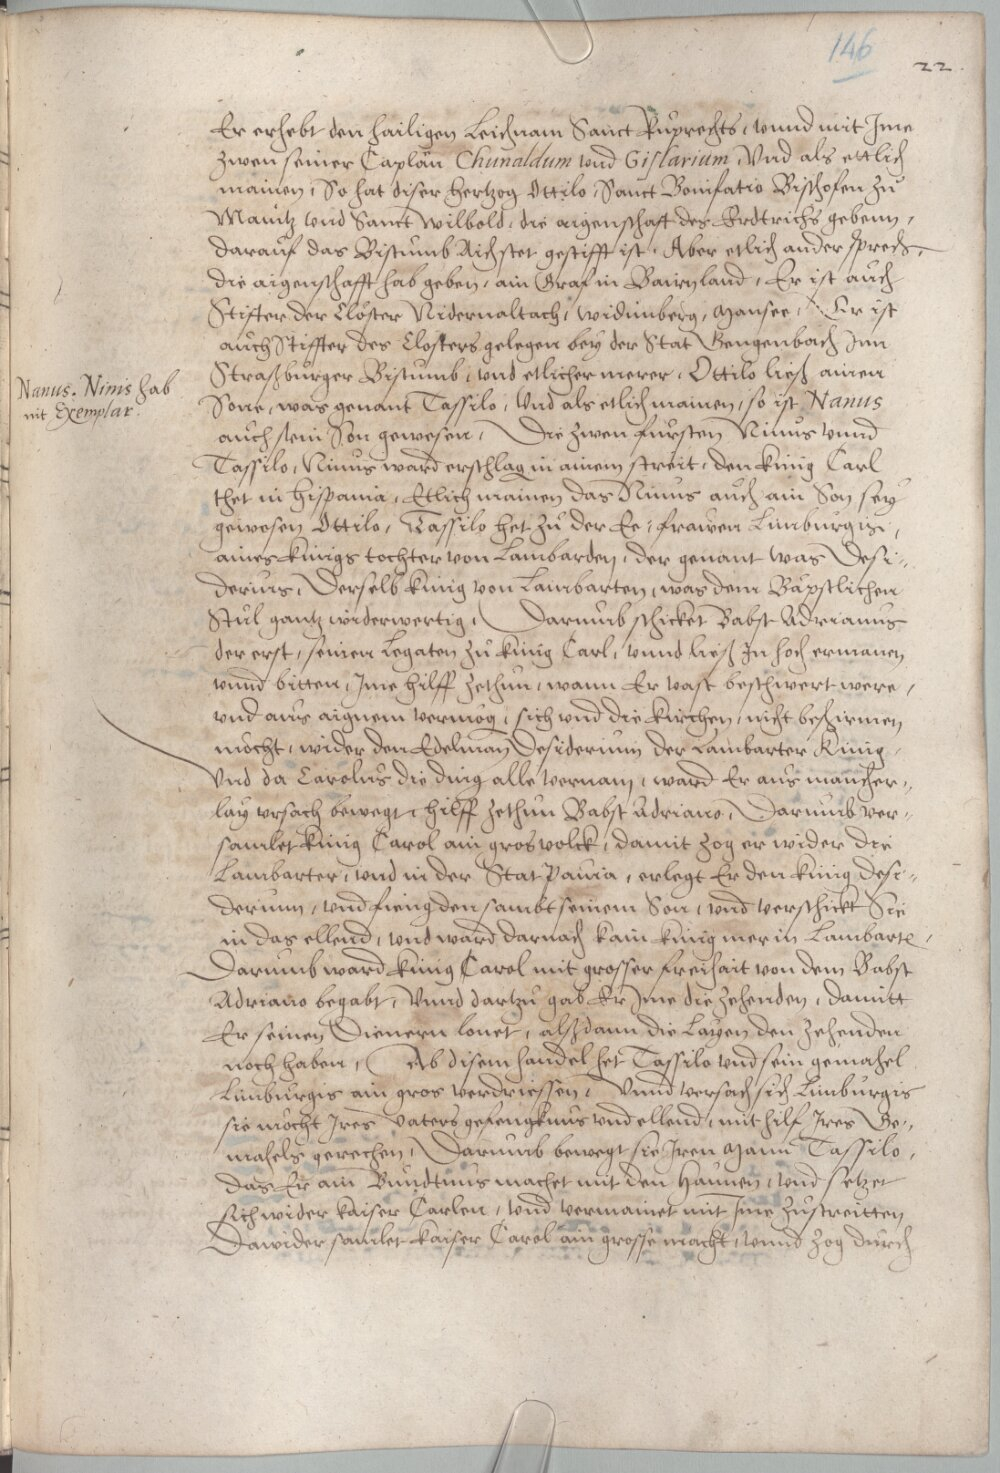 146
22.
Er erhebt den hailigen Leichnam Sanct Ruprechts, vnnd mit Ime
zwen seiner Caplän Chunaldum vnd Gislarium, Vnd als ettlich
mainen, So hat diser Hertzog Ottilo, Sanct Bonifatio Bischofen zu
Maintz vnd Sanct Wilbold, die aigenschafft des Erdtrichs gebenn,
darauf das Bistumb Aichstet gestifft ist. Aber etlich ander sprech,
die aigenschafft hab geben, ain Graf in Bairnland, Er ist auch
Stiffter der Clöster Nidernaltach, Widimberg, Mansee, Er ist
auch Stiffter des Closters gelegen bey der Stat Gengenbach Inn
Straßburger Bistumb, vnd etlicher merer, Ottilo ließ ainen
Sone, was genant Tassilo, Vnd als etlich mainen, so ist Nanus
Nanus. Ninis hab
mit Exemplar.
auch sein Son gewesen, Die zwen fursten Ninus vnnd
Tassilo, Ninus ward erschlag in ainem streit, den kunig Carl
thet in Hispania, Etlich mainen das Ninus auch ain Son sey
gewesen Ottilo, Tassilo het zu der Ee, frawen Linburgis,
aines kunigs tochter von Lambarden, der genant was Desi-
derius, Derselb kunig von Lambarten, was dem Bäpstlichen
Stul gantz widerwertig, Darumb schicket Babst Adrianus
der erst, seinen Legaten zu kunig Carl, vnnd ließ In hoch ermanen
vnnd bitten, Ime hilff zethun, wann Er vast beschwert were,
vnd aus aignem vermög, sich vnd die kirchen, nicht beschirmen
möcht, wider den Edelman Desiderium der Lambarter Kunig,
Vnd da Carolus die ding alle vernam, ward Er aus mancher-
lay vrsach bewegt, hilff zethun Babst Adriano, Darumb ver-
samlet kunig Carol ain gros volck, damit zog er wider die
Lambarter, vnd in der Stat Pauia, erlegt Er den kunig Desi-
derium, vnd fieng den sambt seinem Son, vnd verschickt Sie
in das ellend, vnd ward darnach kain kunig mer in Lambarte,
Darumb ward kunig Carol mit grosser freihait von dem Babst
Adriano begabt, Vnnd dartzu gab Er Ime die zehenden, damitt
Er seinen Dienern lonet, alß dann die Layen den zehenden
noch haben, Ab disem handel het Tassilo vnd sein gemahel
Linburgis ain gros verdriessen, Vnnd versach sich Linburgis
sie möcht Ires vaters gefengknus vnd ellend, mit hilf Ires Ge-
mahels gerechen, Darumb bewegt sie Iren Mann Tassilo,
das Er ain Bundtnus machet mit den Haunen, vnd setzet
sich wider kaiser Carlen, vnd vermainet mit Ime zustreitten
Dawider samlet kaiser Carol ain grosse macht, vnnd zog durch